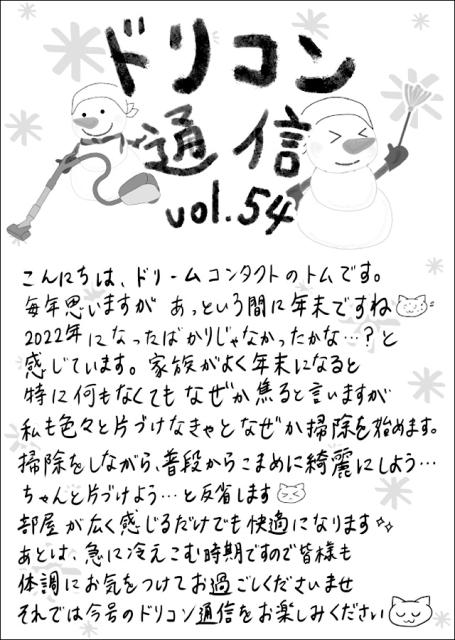 ドリコン
通信
vol.54
こんにちは、ドリームコンタクトのトムです。
毎年思いますが あっという間に年末ですね
2022年になったばかりじゃなかったかな…?と
感じています。家族がよく年末になると
特に何もなくてもなぜか焦ると言いますが
私も色々と片づけなきゃとなぜか掃除を始めます。
掃除をしながら、普段からこまめに綺麗にしよう…
ちゃんと片づけよう…と反省します
部屋が広く感じるだけでも快適になります
あとは、急に冷えこむ時期ですので皆様も
体調にお気をつけてお過ごしくださいませ
それでは今号のドリコン通信をお楽しみください